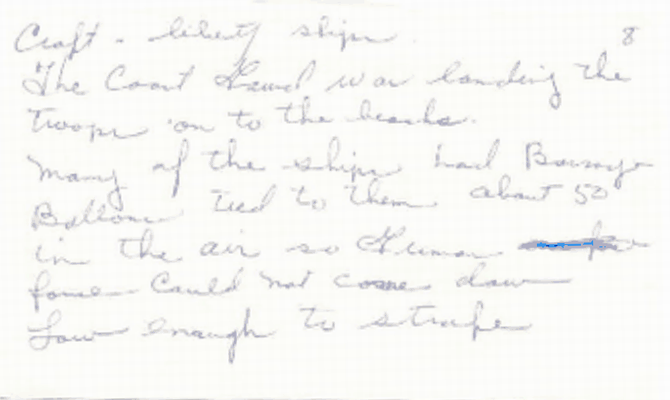 Craft - liberty ships 8
The Coast Guard was landing the
troops on to the beachs.
Many of the ships had Barrage
Balloons tied to them about 50
in the air so German
Could not come down
Low enough to strafe